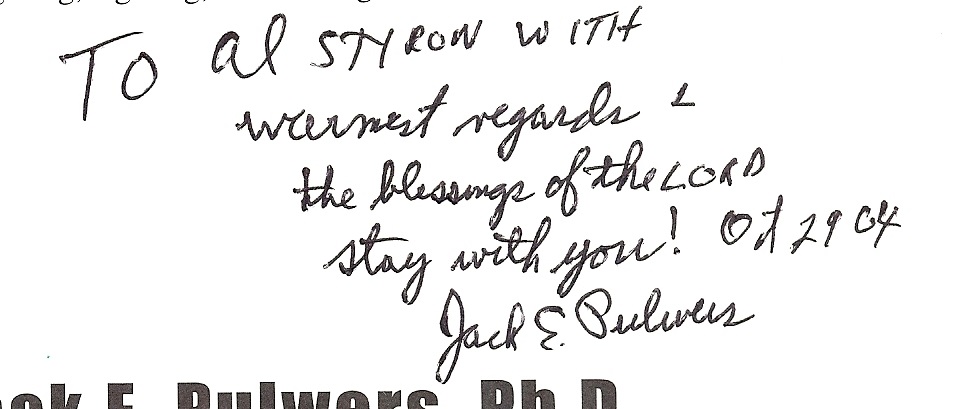 To al STYRON WITH
warmest regards &
the blessings of the LORD
stay with you! Oct 29 04
Jack E. Pulwers
ck E. Pulwers, Ph.D.